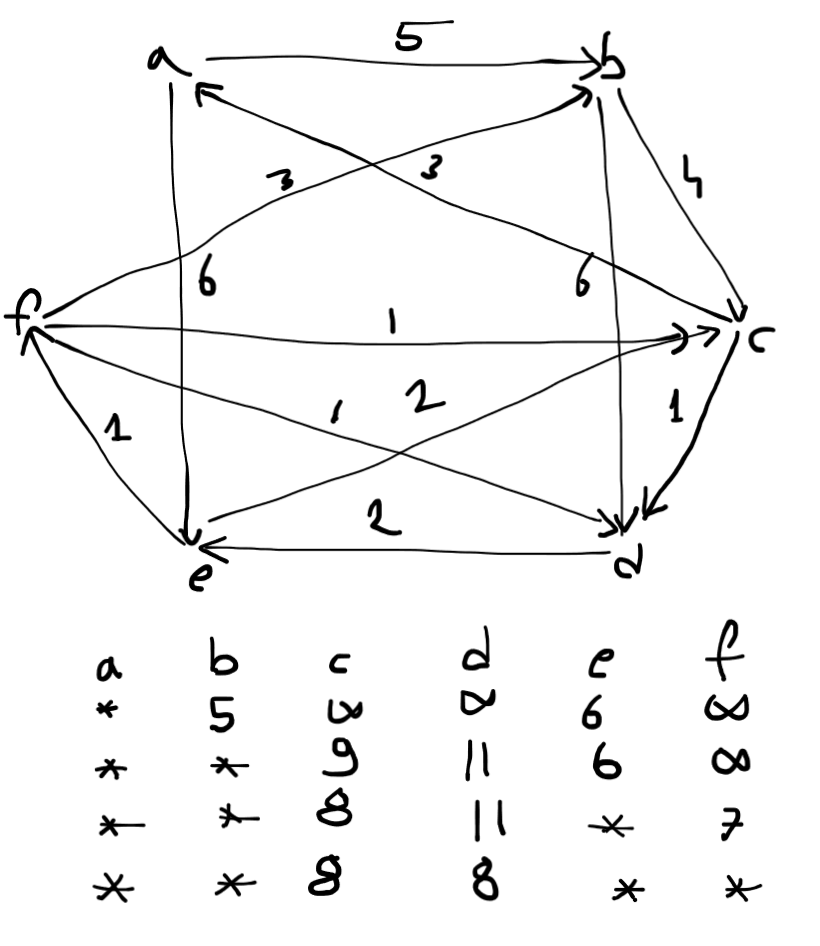 5
a b
3 3 4
6 6
f 1 c
1 1 2 1
2
e d
a b c d e f
* 5 ∞ ∞ 6 ∞
* * 9 11 6 ∞
* * 8 11 * 7
* * 8 8 * *